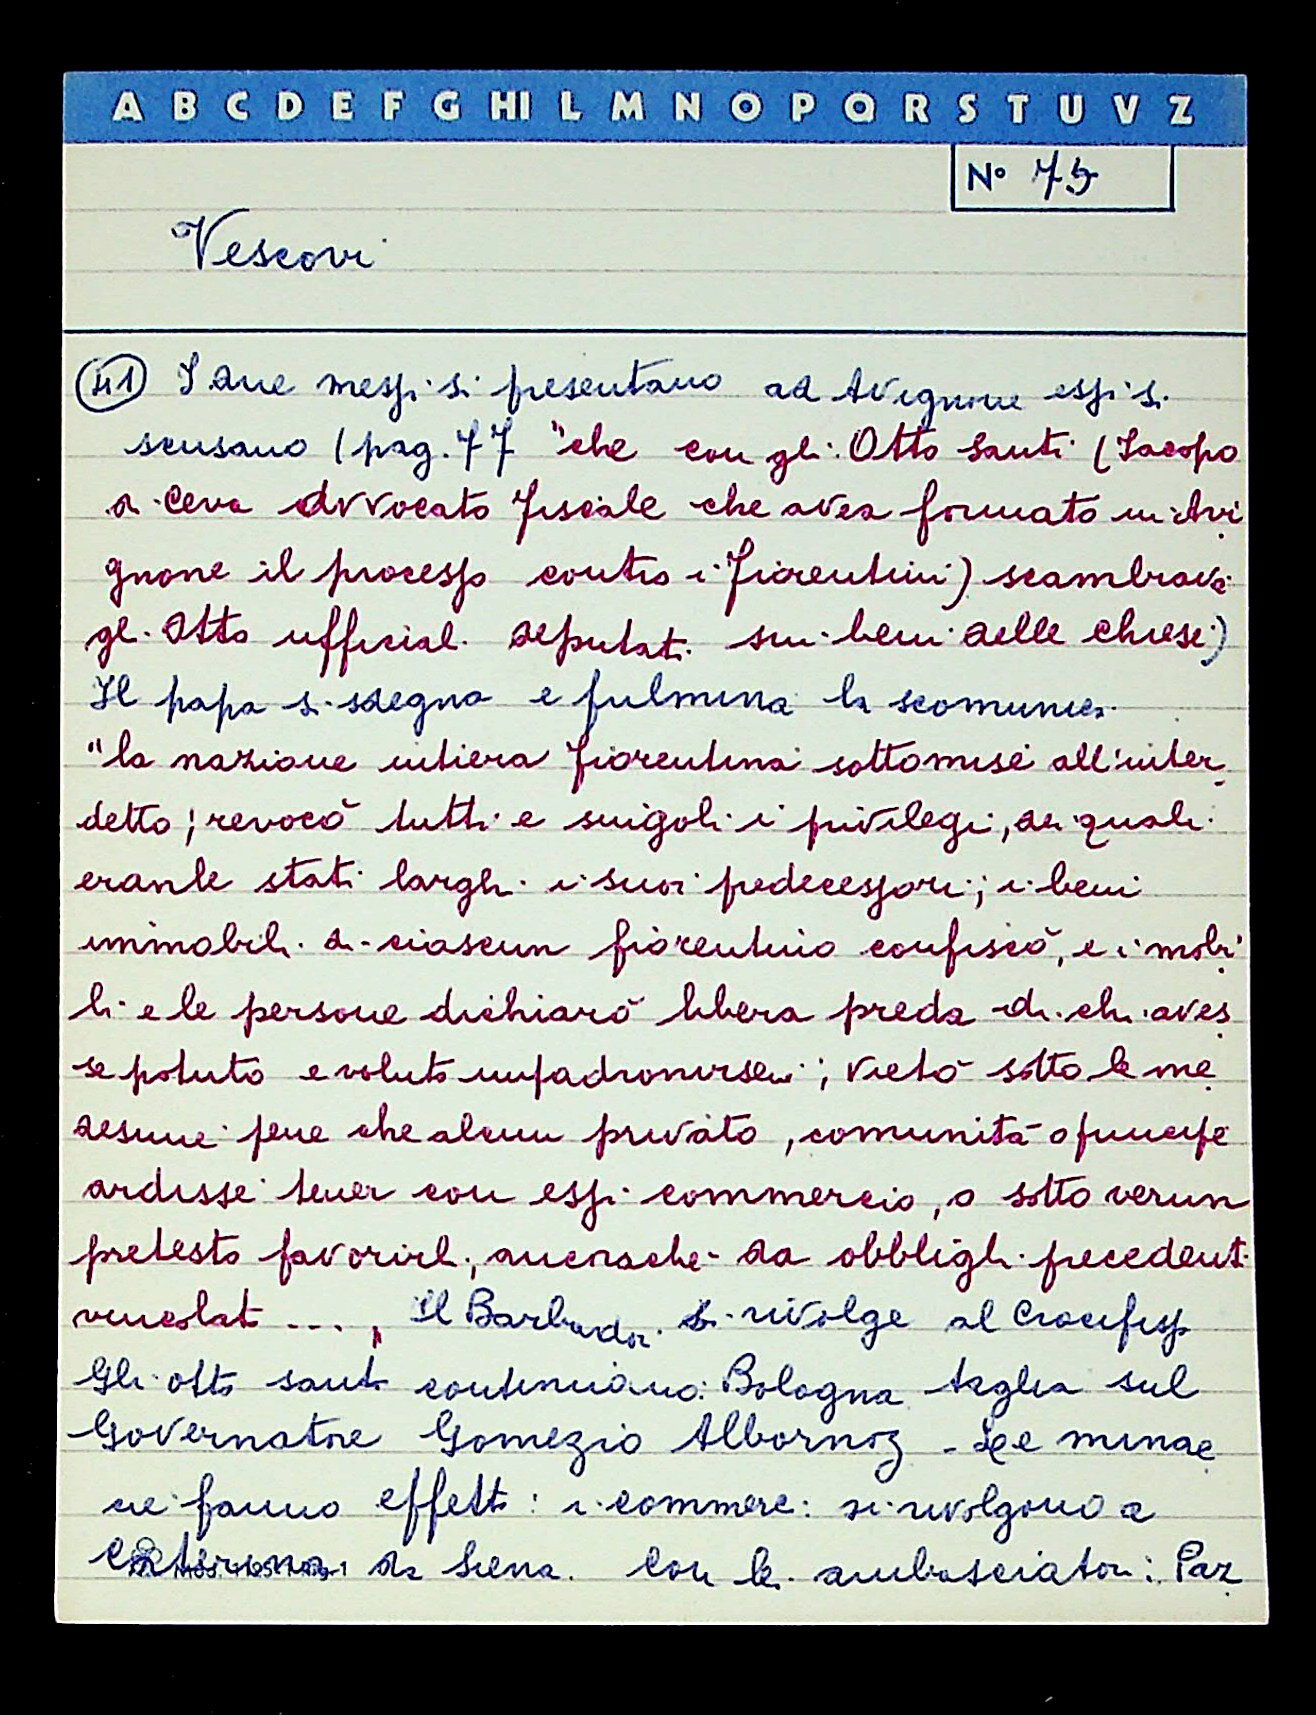 A B C D E F G HI L M N O P Q R S T U V Z
N° 75
Vescovi
(41) I due messi si presentano ad Avignone essi si
scusano (pag. 77 "che con gli Otto Santi (Iacopo
di Ceva Avvocato fiscale che avea formato in Avi
gnone il processo contro i fiorentini) scambiava
gli Otto ufficiali deputati sui beni delle chiese)
Il papa si sdegna e fulmina la scomunica
"la nazione intiera fiorentina sottomise all'inter
detto; revocò tutti e singoli i privilegi, dei quali
eranle stati larghi i suoi predecessori; i beni
immobili di ciascun fiorentino confiscò, e i mobi
li e le persone dichiarò libera preda di chi aves
se potuto e voluto impadronirsene; vietò sotto le me
desime pene che alcun privato, comunità o principe
ardisse tener con essi commercio, o sotto verun
pretesto favorirli, ancorchè da obblighi precedenti
vincolati ..., Il Barbadori si rivolge al Crocefisso
Gli otto santi continuano: Bologna taglia sul
Governatore Gomezio Albornoz - Le minac
ce fanno effetto: i commerc: si rivolgono a
Caterina da Siena. Con le ambasciatori: Paz